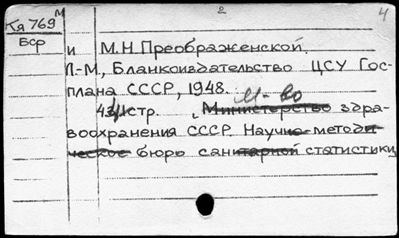 М 2 4
Кя 769
Бср
и М.Н.Преображенской.
Л-М, Бланкоиздательство ЦСУ Гос-
плана СССР, 1948.
М-во
стр. „Министерство здра-
воохранения СССР. Научно-методи
ческое бюро санитарной статистики